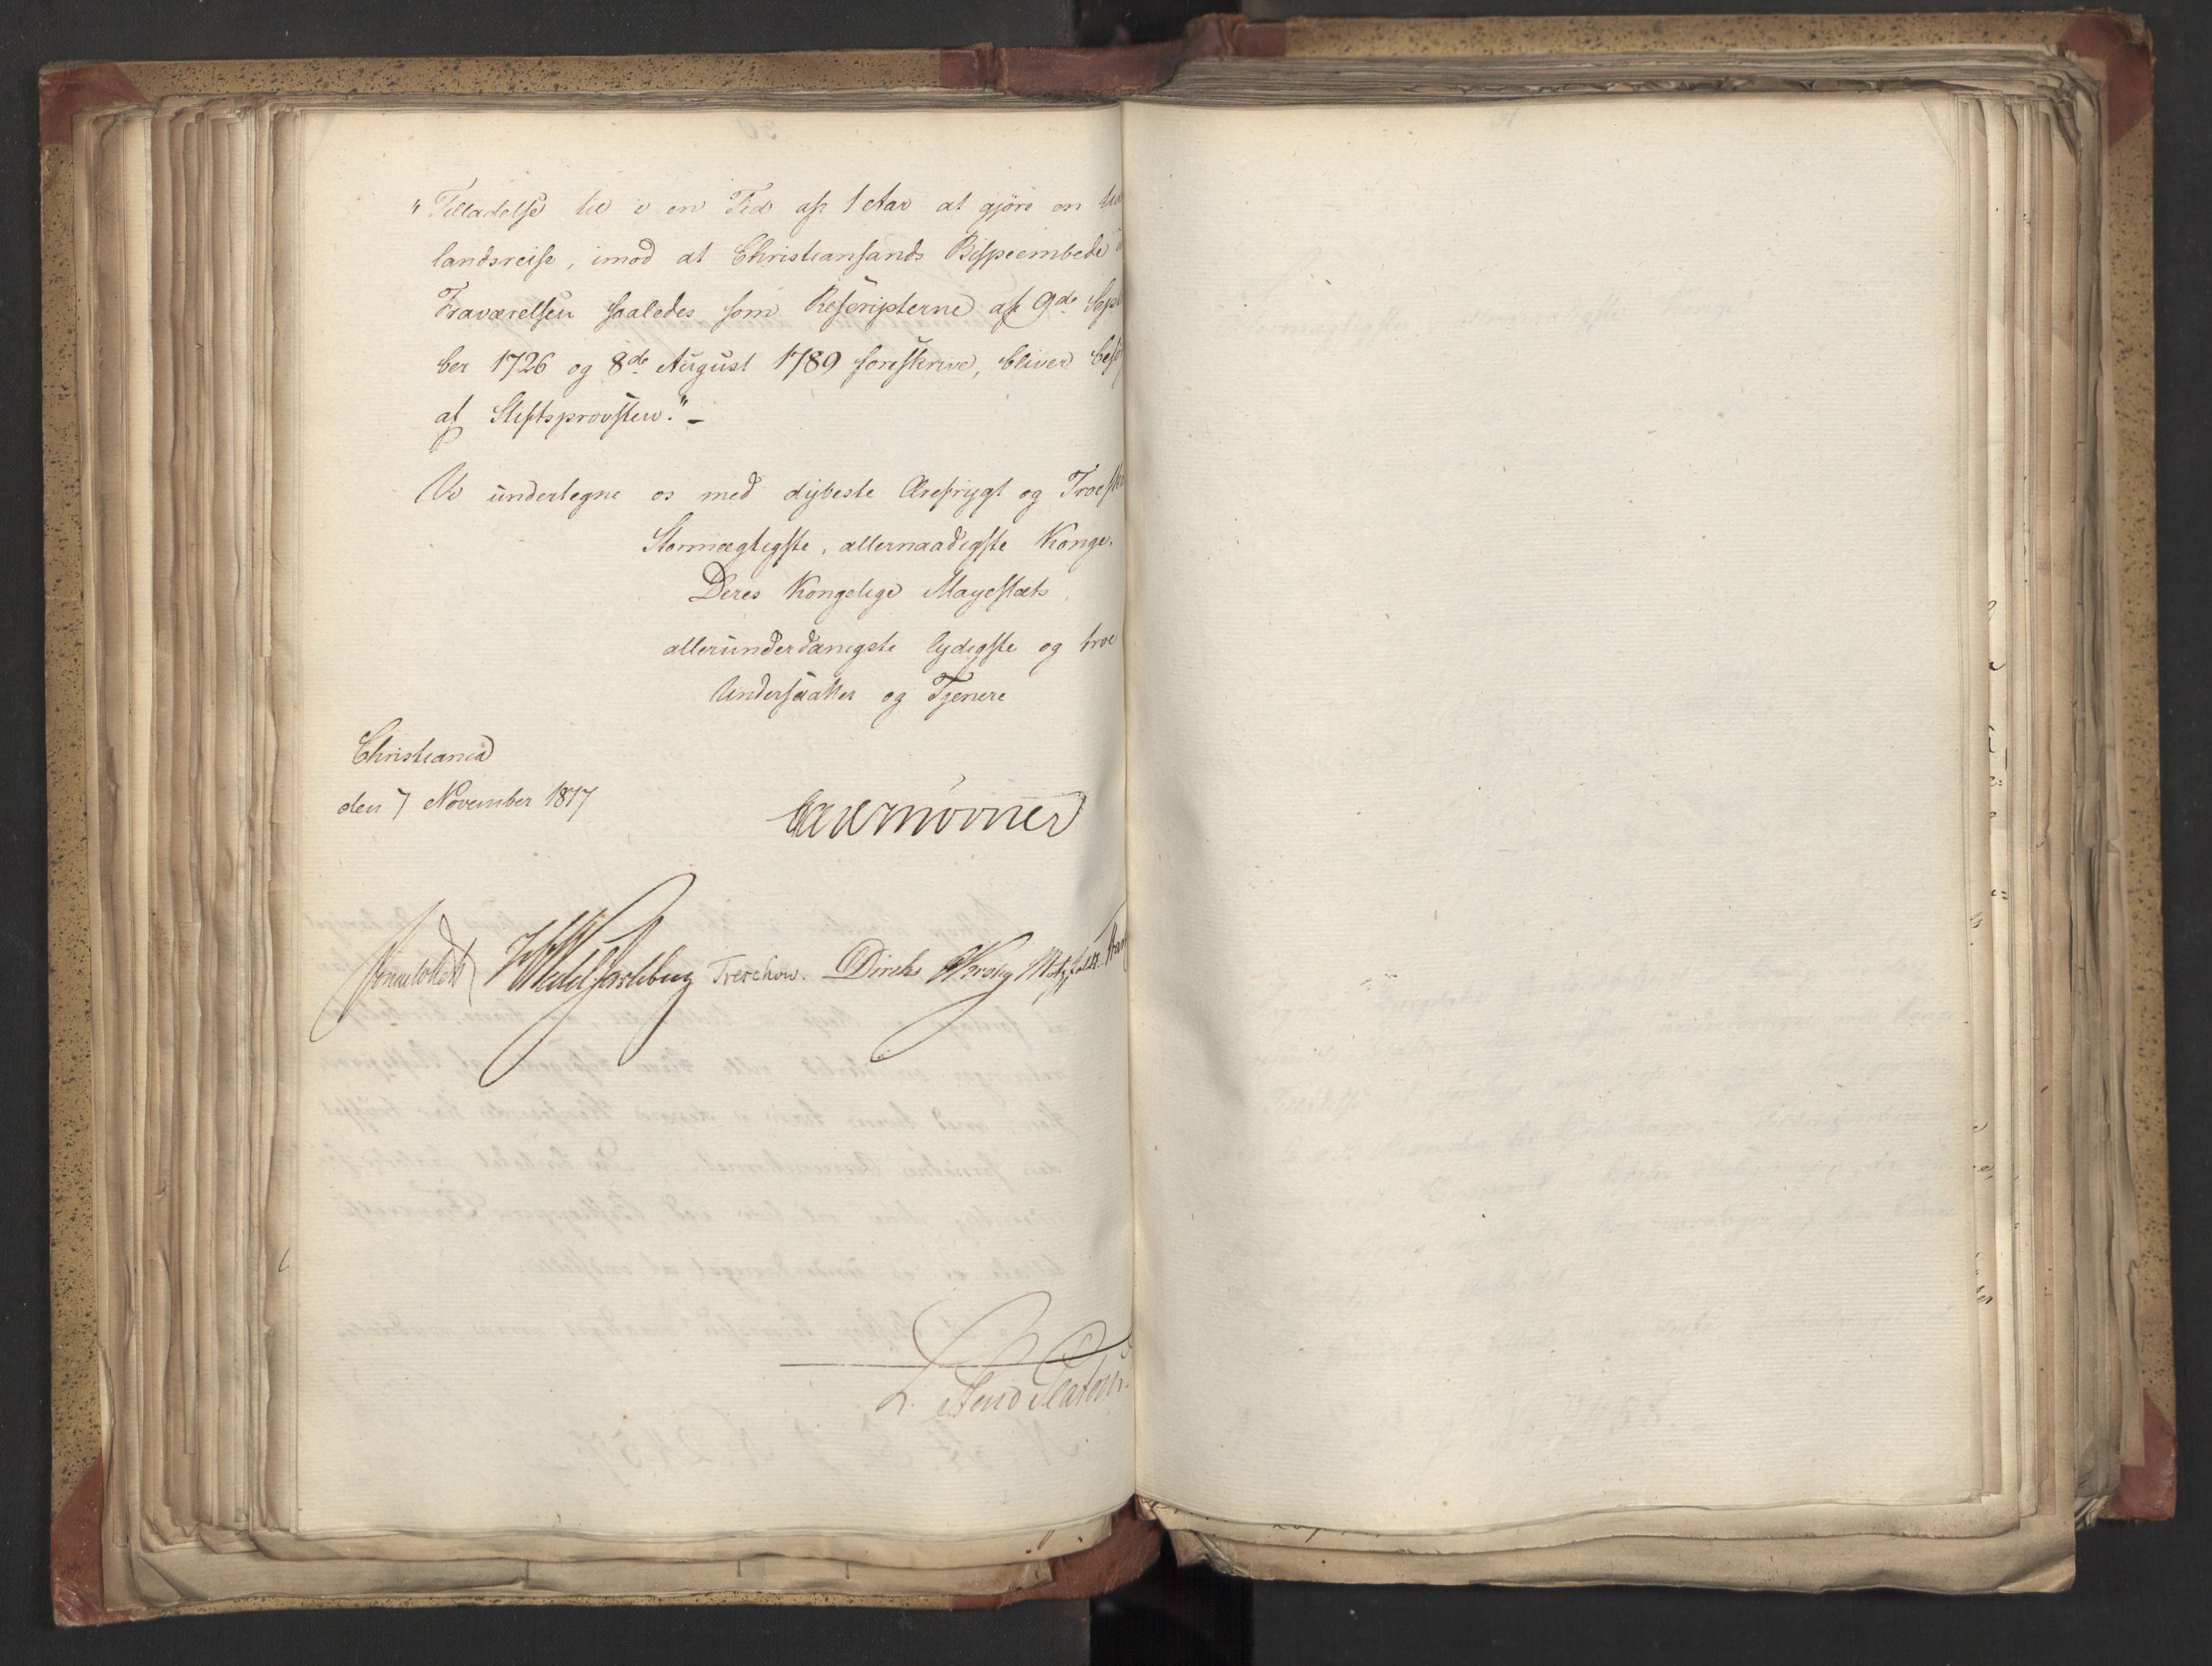 "Tilladelse til i en Tid af 1 Aar at gjöre en
landsreise, imod at Christiansands Bispeembede i
Fraværelsen saaledes som Rescripterne af 9de Sept
ber 1726 og 8de August 1789 foreskrive, bliver
af Stiftsprovsten."-
Vi undertegne os med dybeste Ærefrygt og
Stormægtigste, allernaadigste Konge.
Deres Kongelige Mayestæts
allerunderdanigste lydigste og troe
Undersaatter og Tjenere
Christiania
den 7 November 1817
CCCMörner
Treschow. Diriks Krog Motzfeldt.